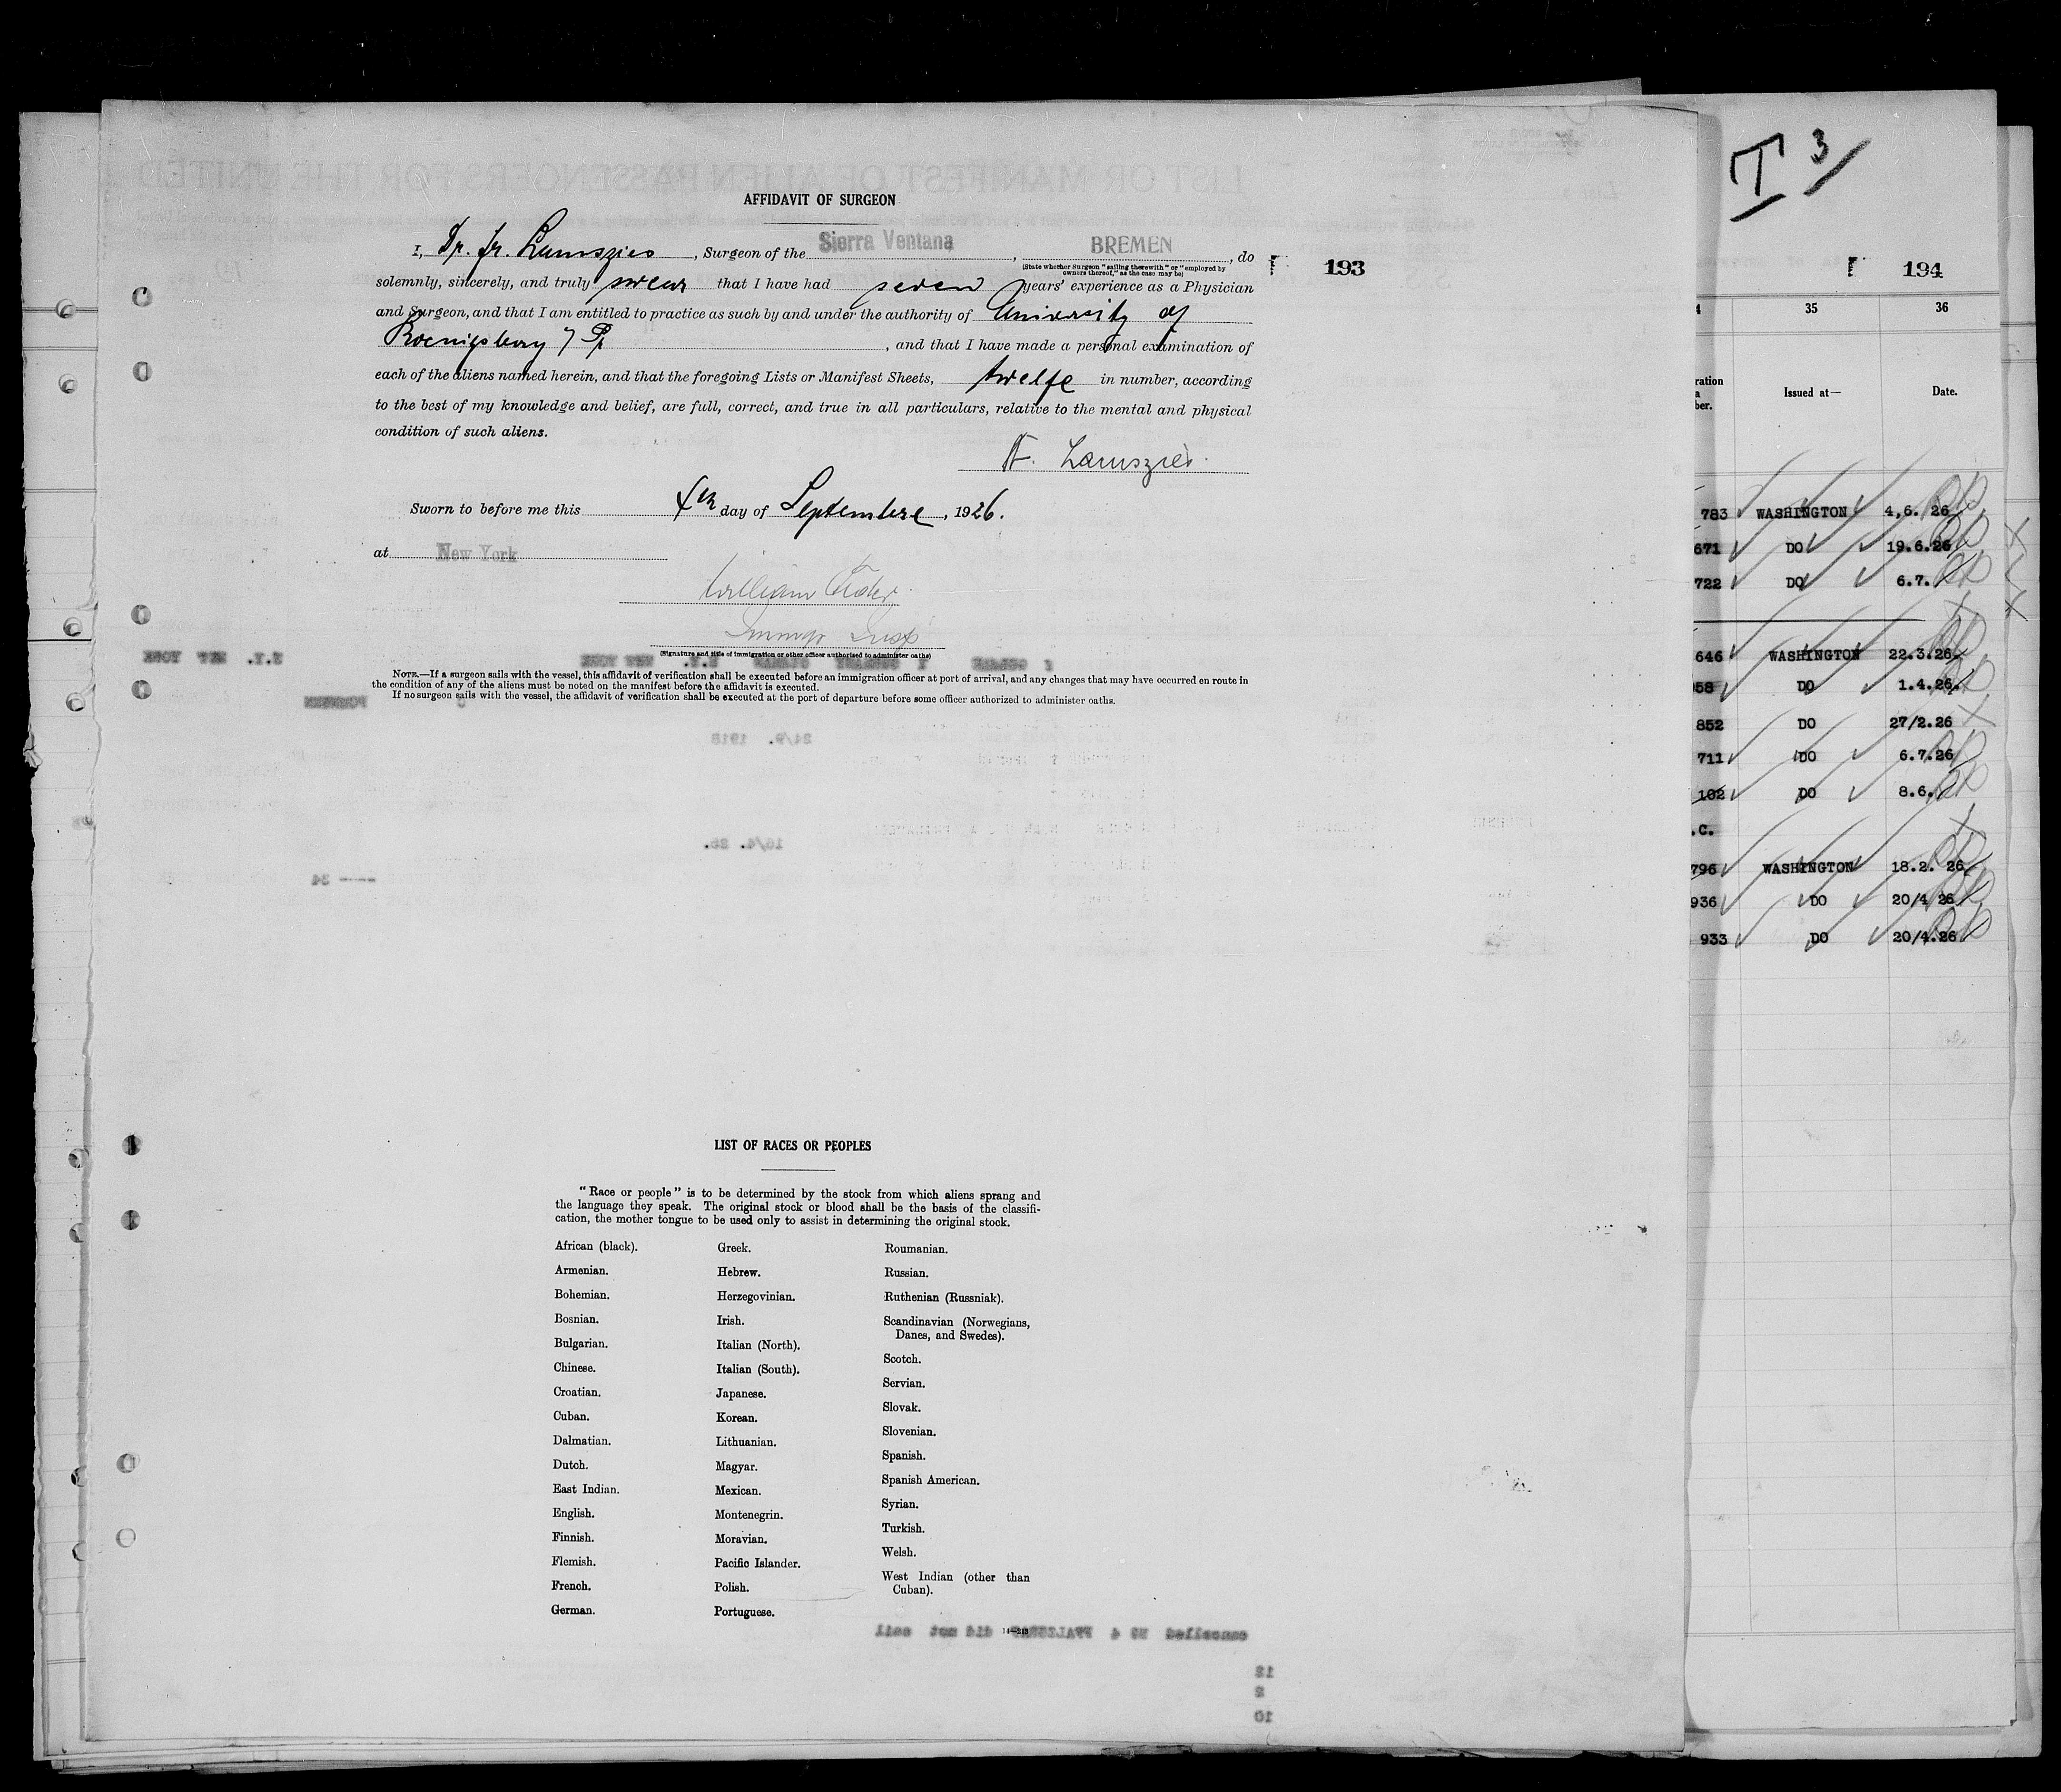 T 3/
AFFIDAVIT OF SURGEON
I, Dr. Fr. Lamszies, Surgeon of the Sierra Ventana, BREMEN, do
(State whether Surgeon "sailing therewith" or "employed by
owners thereof," as the case may be)
solemnly, sincerely, and truly swear that I have had seven years' experience as a Physician
and Surgeon, and that I am entitled to practice as such by and under the authority of University of
Koenigsberg, and that I have made a personal examination of
each of the aliens named herein, and that the foregoing Lists or Manifest Sheets, twelfe in number, according
to the best of my knowledge and belief, are full, correct, and true in all particulars, relative to the mental and physical
condition of such aliens.
Lamszies.
Sworn to before me this 4th day of Septembre, 1926.
at New York
William
Immgr Insp
(Signature and title of immigration or other officer authorized to administer oaths)
NOTE.—If a surgeon sails with the vessel, this affidavit of verification shall be executed before an immigration officer at port of arrival, and any changes that may have occurred en route in
the condition of any of the aliens must be noted on the manifest before the affidavit is executed.
If no surgeon sails with the vessel, the affidavit of verification shall be executed at the port of departure before some officer authorized to administer oaths.
LIST OF RACES OR PEOPLES
"Race or people" is to be determined by the stock from which aliens sprang and
the language they speak. The original stock or blood shall be the basis of the classifi-
cation, the mother tongue to be used only to assist in determining the original stock.
African (black).
Armenian.
Bohemian.
Bosnian.
Bulgarian.
Chinese.
Croatian.
Cuban.
Dalmatian.
Dutch.
East Indian.
English.
Finnish.
Flemish.
French.
German.
Greek.
Hebrew.
Herzegovinian.
Irish.
Italian (North).
Italian (South).
Japanese.
Korean.
Lithuanian.
Magyar.
Mexican.
Montenegrin.
Moravian.
Pacific Islander.
Polish.
Portuguese.
Roumanian.
Russian.
Ruthenian (Russniak).
Scandinavian (Norwegians,
Danes, and Swedes).
Scotch.
Servian.
Slovak.
Slovenian.
Spanish.
Spanish American.
Syrian.
Turkish.
Welsh.
West Indian (other than
Cuban).
193
194
4 35 36
ration
a
ber.
Issued at—
Date.
783 WASHINGTON 4,6. 26
671 DO 19.6.26
722 DO 6.7.
646 WASHINGTON 22.3.26.
58 DO 1.4.26.
852 DO 27/2.26
711 DO 6.7.26
102 DO 8.6.
.C.
796 WASHINGTON 18.2. 26
936 DO 20/4 26
933 DO 20/4.26